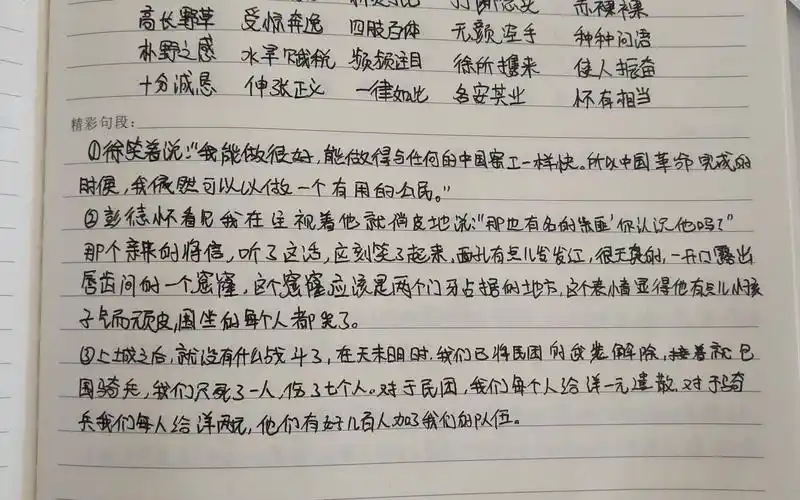 高长野草 受惊奔逸 四肢百体 无颜 空手 种种问语
朴野之感 水旱 税 频频注目 徐所携来 使人振奋
十分诚恳 伸张正义 一律如此 各安其业 怀有相当
精彩句段：
①徐笑着说：“我能做很好，能做得与任何的中国密工一样快。所以中国革命完成的
时候，我依然可以以做一个有用的公民。”
②彭德怀看见我在注视着他就俏皮地说：“那也有名的朱 ’你认识他吗？”
那个亲来的将信，听了这话，应刻笑了起来，面孔有点儿发发红，很天 的，一开口露出
唇齿间的一个窟窿，这个窟窿应该是两个门牙占据的地方，这个表 者显得他有点儿小孩
子气而顽皮，围坐的每个人都笑了。
③上城之后，就没有什么战斗了，在天未明时，我们已将民团的武装解除，接着就包
围骑兵，我们只死了一人，伤了七个人。对于民团，我们每个人给洋一元遣散，对于骑
兵我们每人给洋两玩，他们有好几百人加了我们的队伍。